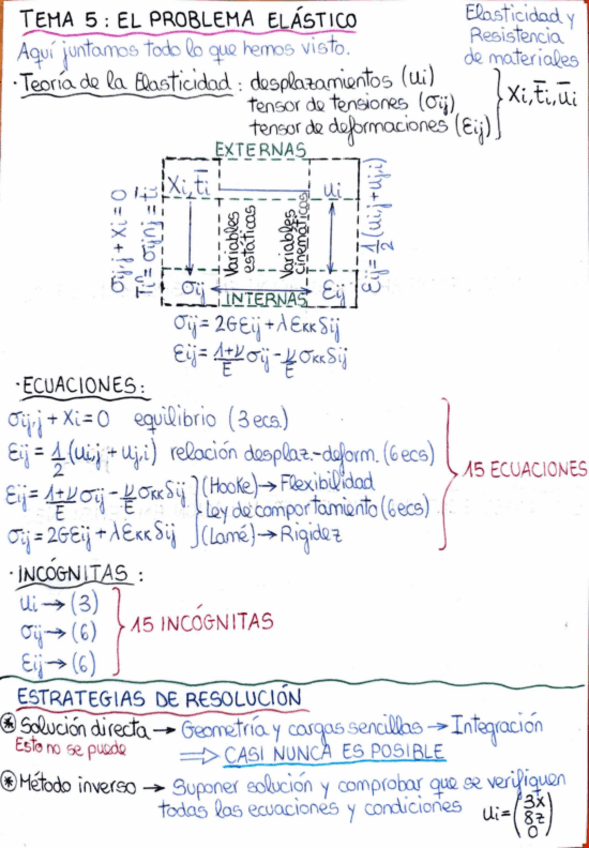 TEMA 5: EL PROBLEMA ELÁSTICO
Elasticidad y
Resistencia
de materiales
Aquí juntamos todo lo que hemos visto.
· Teoría de la Elasticidad: desplazamientos (ui)
tensor de tensiones (σij)
tensor de deformaciones (εij)
Xi, t̄i, ūi
EXTERNAS
Xi, t̄i
ui
σij,j + Xi = 0
Tiⁿ = σij nj = t̄i
Variables estáticas
Variables cinemáticas
εij = 1/2 (ui,j + uj,i)
σij
INTERNAS
εij
σij = 2Gεij + λεκκδij
εij = 1+ν/E σij - ν/E σκκδij
· ECUACIONES:
σij,j + Xi = 0 equilibrio (3 ecs.)
εij = 1/2 (ui,j + uj,i) relación desplaz.-deform. (6 ecs)
εij = 1+ν/E σij - ν/E σκκδij (Hooke) → Flexibilidad
Ley de comportamiento (6 ecs)
σij = 2Gεij + λεκκδij (Lamé) → Rigidez
15 ECUACIONES
· INCÓGNITAS:
ui → (3)
σij → (6)
εij → (6)
15 INCÓGNITAS
ESTRATEGIAS DE RESOLUCIÓN
⊛ Solución directa → Geometría y cargas sencillas → Integración
Esto no se puede
⇒ CASI NUNCA ES POSIBLE
⊛ Método inverso → Suponer solución y comprobar que se verifiquen
todas las ecuaciones y condiciones
ui = (3x
8z
0)